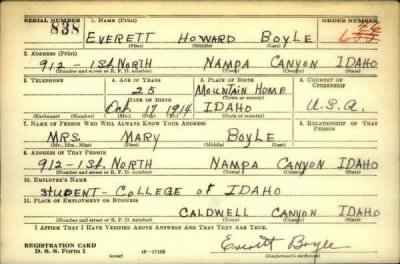 SERIAL NUMBER 1. NAME (Print) ORDER NUMBER
838 EVERETT HOWARD BOYLE
(First) (Middle) (Last)
2. ADDRESS (Print)
912 - 1st. NORTH NAMPA CANYON IDAHO
(Number and street or R. F. D. number) (Town) (County) (State)
3. TELEPHONE 4. AGE IN YEARS 5. PLACE OF BIRTH 6. COUNTRY OF CITIZENSHIP
25 MOUNTAIN HOME
DATE OF BIRTH (Town or county)
Oct 19 1914 IDAHO U.S.A.
(Exchange) (Number) (Mo.) (Day) (Yr.) (State or country)
7. NAME OF PERSON WHO WILL ALWAYS KNOW YOUR ADDRESS 8. RELATIONSHIP OF THAT PERSON
MRS. MARY BOYLE
(Mr., Mrs., Miss) (First) (Middle) (Last)
9. ADDRESS OF THAT PERSON
912-1st. NORTH NAMPA CANYON IDAHO
(Number and street or R. F. D. number) (Town) (County) (State)
10. EMPLOYER'S NAME
STUDENT - COLLEGE of IDAHO
11. PLACE OF EMPLOYMENT OR BUSINESS
CALDWELL CANYON IDAHO
(Number and street or R. F. D. number) (Town) (County) (State)
I AFFIRM THAT I HAVE VERIFIED ABOVE ANSWERS AND THAT THEY ARE TRUE.
REGISTRATION CARD
D. S. S. Form 1 (over) 16-17105 Everett Boyle
(Registrant's signature)